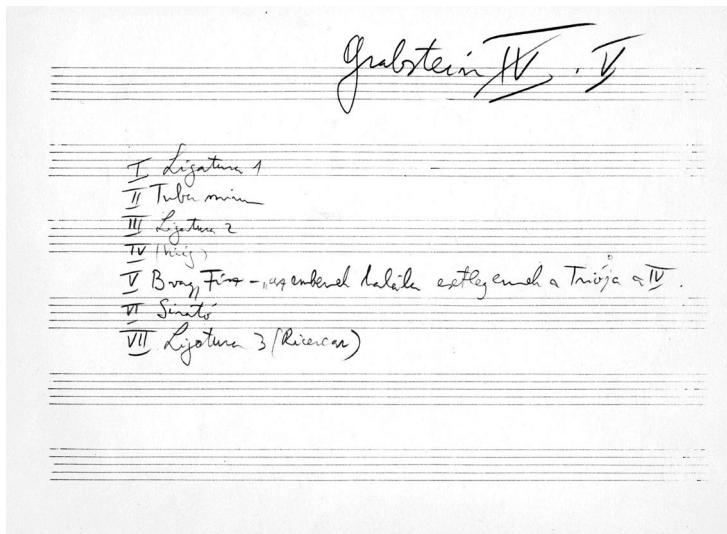 Grabstein IV. V
I Ligatura 1
II Tuba mirum
III Ligatura 2
IV
V B vagy Fisz - az embernek halála esetleg ennek a Triója a IV.
VI Sirató
VII Ligatura 3 (Ricercar)